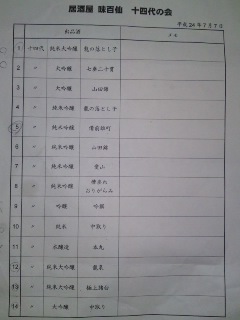 居酒屋 味百仙 十四代の会
平成24年7月7日
出品酒 メモ
1 十四代 純米大吟醸 龍の落とし子
2 〃 大吟醸 七垂二十貫
3 〃 大吟醸 山田錦
4 〃 純米吟醸 龍の落とし子
5 〃 純米吟醸 備前雄町
6 〃 純米吟醸 山田錦
7 〃 純米吟醸 愛山
8 〃 純米吟醸 酒未来
9 〃 吟醸 吟撰
10 〃 純米 中取り
11 〃 本醸造 本丸
12 〃 純米大吟醸 龍泉
13 〃 純米大吟醸 極上諸白
14 〃 大吟醸 中取り